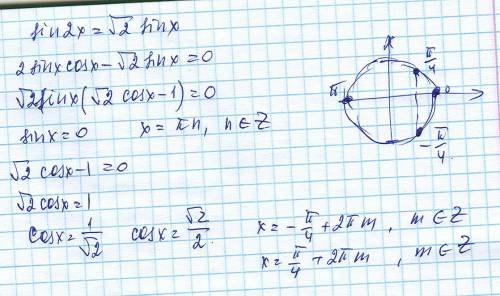 sin2x = √2 sinx
2sinxcosx - √2 sinx = 0
√2 sinx (√2 cosx - 1) = 0
sinx = 0 x = πn, n ∈ Z
√2 cosx - 1 = 0
√2 cosx = 1
cosx = 1/√2 cosx = √2/2.
x = -π/4 + 2πm, m ∈ Z
x = π/4 + 2πm, m ∈ Z
π/4
π
0
-π/4.